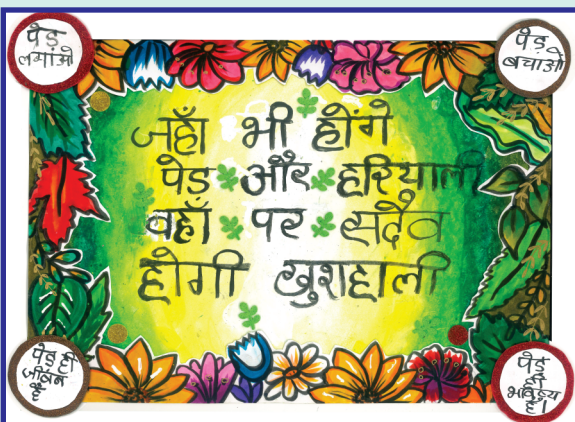 पेड़
लगाओ
पेड़
बचाओ
जहाँ भी होंगे
पेड और हरियाली
वहाँ पर सदैव
होगी खुशहाली
पेड़ ही
जीवन
है
पेड़
ही
भविष्य
है।